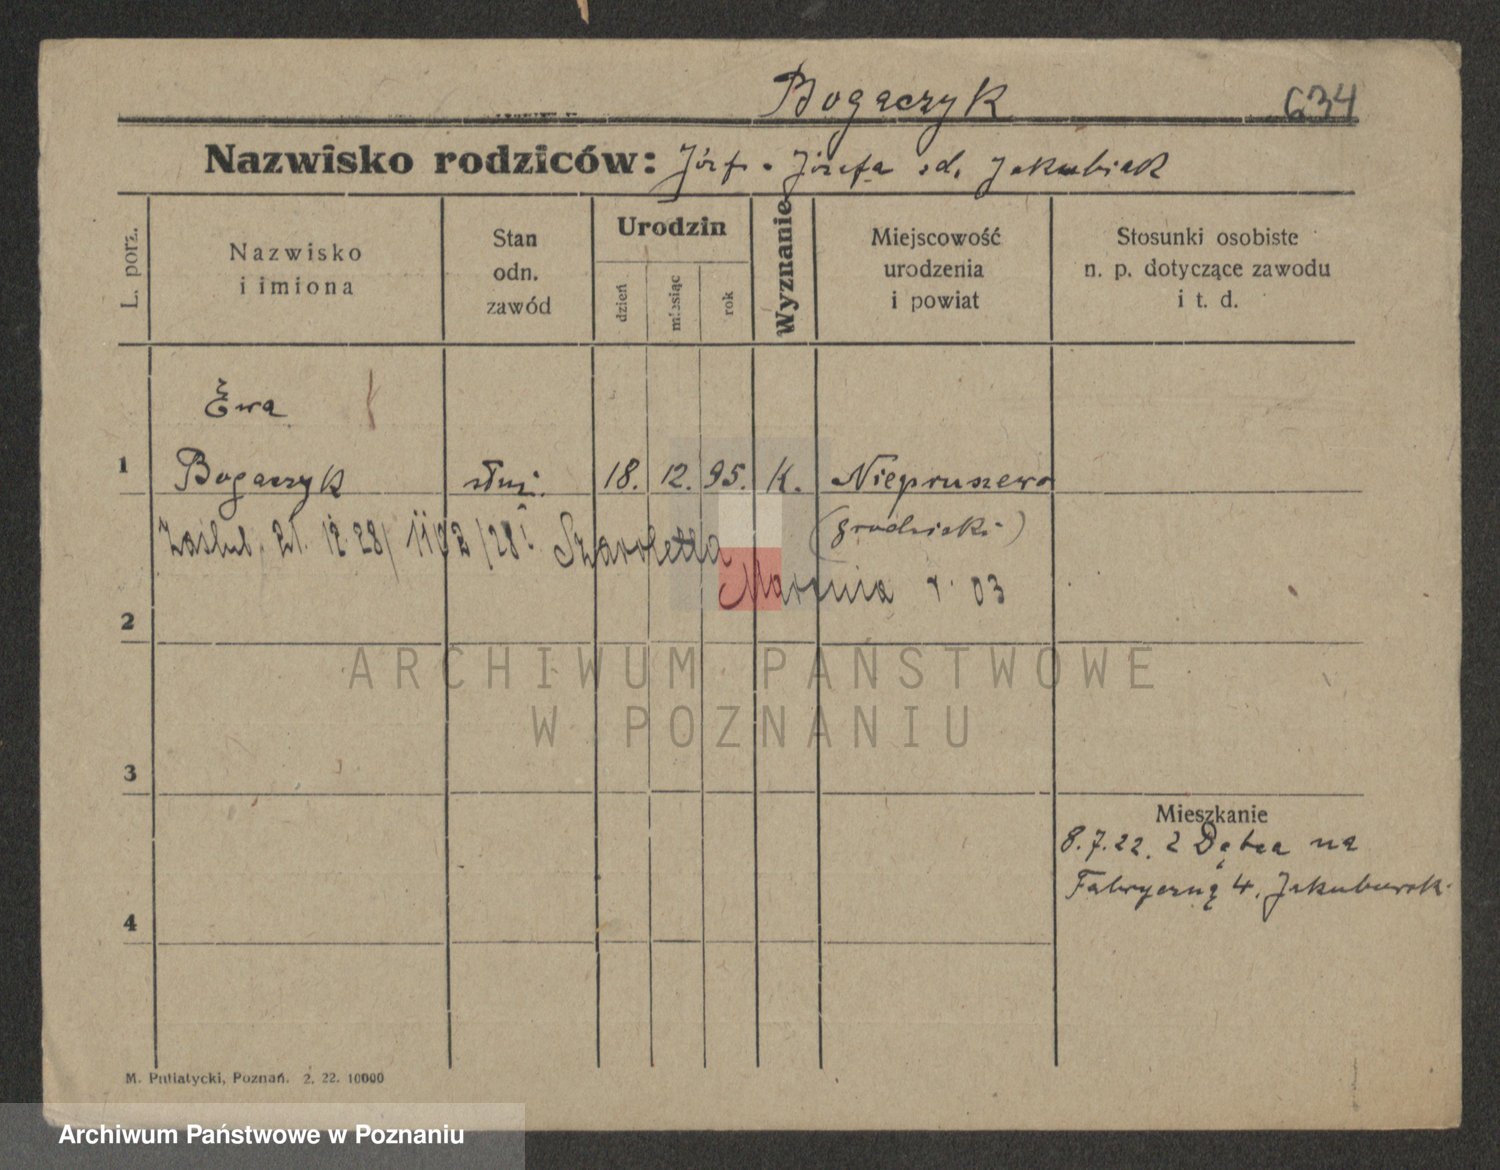 Bogaczyk 634
Nazwisko rodziców: Józef - Józefa zd. Jakubiak
L. porz.
Nazwisko
i imiona
Stan
odn.
zawód
Urodzin
dzień
miesiąc
rok
Wyznanie
Miejscowość
urodzenia
i powiat
Stosunki osobiste
n. p. dotyczące zawodu
i t. d.
Ewa
1 Bogaczyk służ. 18. 12. 95. K. Niepruszewo
(grodziski)
Zaślub. 21. 12 28/ 1102/28: Szaroletta
Marcina r. 03
2
ARCHIWUM PAŃSTWOWE
W POZNANIU
3
Mieszkanie
8.7.22. z Dębca na
Fabryczną 4,
4
M. Putiatycki, Poznań. 2. 22. 10000
Archiwum Państwowe w Poznaniu